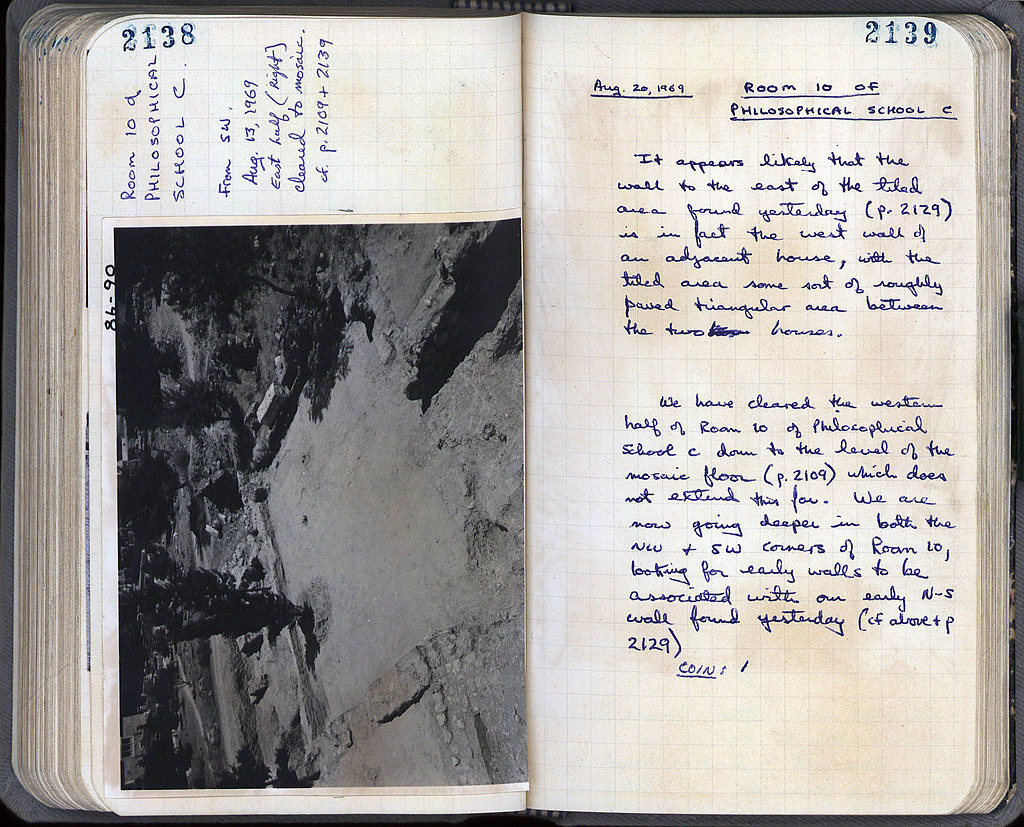 2138
Room 10 of
PHILOSOPHICAL
SCHOOL C.
From SW.
Aug. 13, 1969
East half (right)
cleared to mosaic.
cf. p. 2109 + 2139
86-90
2139
Aug. 20, 1969
ROOM 10 OF
PHILOSOPHICAL SCHOOL C
It appears likely that the
wall to the east of the tiled
area found yesterday (p. 2129)
is in fact the west wall of
an adjacent house, with the
tiled area some sort of roughly
paved triangular area between
the two houses.
We have cleared the western
half of Room 10 of Philosophical
School C down to the level of the
mosaic floor (p. 2109) which does
not extend this far. We are
now going deeper in both the
NW + SW corners of Room 10,
looking for early walls to be
associated with our early N-S
wall found yesterday (cf above + p
2129)
COIN: 1